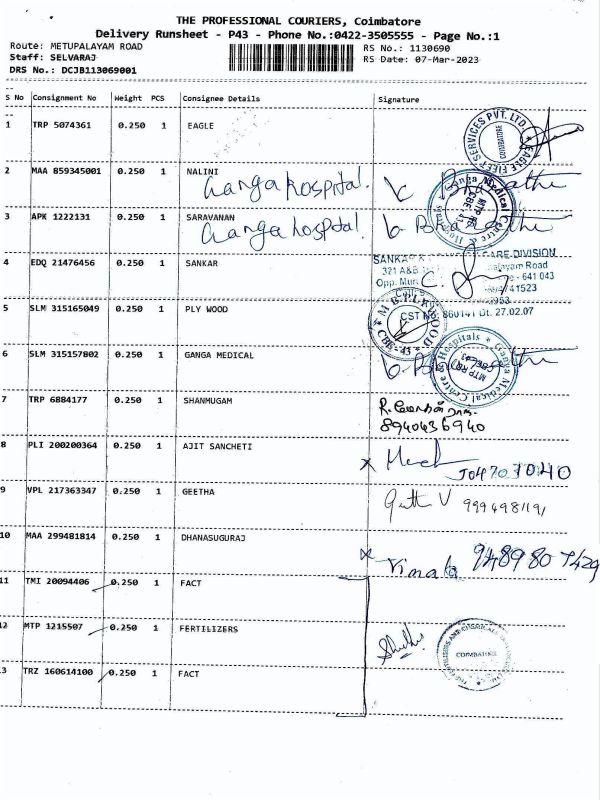 THE PROFESSIONAL COURIERS, Coimbatore
Delivery Runsheet - P43 - Phone No.:0422-3505555 - Page No.:1
Route: METUPALAYAM ROAD RS No.: 1130690
Staff: SELVARAJ RS Date: 07-Mar-2023
DRS No.: DCJB113069001
S No Consignment No Weight PCS Consignee Details Signature
1 TRP 5074361 0.250 1 EAGLE
EAGLE FLEET SERVICES PVT. LTD. COIMBATORE
2 MAA 859345001 0.250 1 NALINI
Ganga hospital.
3 APK 1222131 0.250 1 SARAVANAN
Ganga hospital.
Ganga Medical Centre & Hospitals MTP RD. CBE-43
4 EDQ 21476456 0.250 1 SANKAR
SANKAR CARE DIVISION
321 A&B Road
Opp. Mun - 641 043
41523
CST No. 860141 Dt. 27.02.07
5 SLM 315165049 0.250 1 PLY WOOD
CBE-43
6 SLM 315157802 0.250 1 GANGA MEDICAL
Ganga Medical Centre & Hospitals MTP RD. CBE-43
7 TRP 6884177 0.250 1 SHANMUGAM
8940436940
8 PLI 200200364 0.250 1 AJIT SANCHETI
9 VPL 217363347 0.250 1 GEETHA
9994981191
10 MAA 299481814 0.250 1 DHANASUGURAJ
Vimala
11 TMI 20094406 0.250 1 FACT
12 MTP 1215507 0.250 1 FERTILIZERS
COIMBATORE
3 TRZ 160614100 0.250 1 FACT